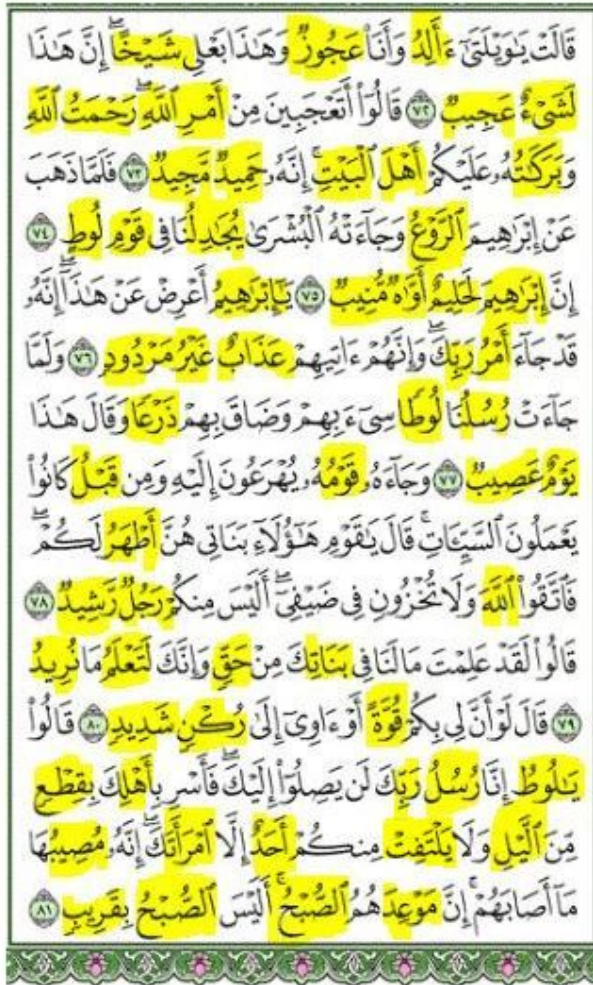 قَالَتْ يَٰوَيْلَتَىٰٓ ءَأَلِدُ وَأَنَا۠ عَجُوزٌ وَهَٰذَا بَعْلِى شَيْخًا ۖ إِنَّ هَٰذَا
لَشَىْءٌ عَجِيبٌ ٧٢ قَالُوٓا۟ أَتَعْجَبِينَ مِنْ أَمْرِ ٱللَّهِ ۖ رَحْمَتُ ٱللَّهِ
وَبَرَكَٰتُهُۥ عَلَيْكُمْ أَهْلَ ٱلْبَيْتِ ۚ إِنَّهُۥ حَمِيدٌ مَّجِيدٌ ٧٣ فَلَمَّا ذَهَبَ
عَنْ إِبْرَٰهِيمَ ٱلرَّوْعُ وَجَآءَتْهُ ٱلْبُشْرَىٰ يُجَٰدِلُنَا فِى قَوْمِ لُوطٍ ٧٤
إِنَّ إِبْرَٰهِيمَ لَحَلِيمٌ أَوَّٰهٌ مُّنِيبٌ ٧٥ يَٰٓإِبْرَٰهِيمُ أَعْرِضْ عَنْ هَٰذَآ ۖ إِنَّهُۥ
قَدْ جَآءَ أَمْرُ رَبِّكَ ۖ وَإِنَّهُمْ ءَاتِيهِمْ عَذَابٌ غَيْرُ مَرْدُودٍ ٧٦ وَلَمَّا
جَآءَتْ رُسُلُنَا لُوطًا سِىٓءَ بِهِمْ وَضَاقَ بِهِمْ ذَرْعًا وَقَالَ هَٰذَا
يَوْمٌ عَصِيبٌ ٧٧ وَجَآءَهُۥ قَوْمُهُۥ يُهْرَعُونَ إِلَيْهِ وَمِن قَبْلُ كَانُوا۟
يَعْمَلُونَ ٱلسَّيِّـَٔاتِ ۚ قَالَ يَٰقَوْمِ هَٰٓؤُلَآءِ بَنَاتِى هُنَّ أَطْهَرُ لَكُمْ ۖ
فَٱتَّقُوا۟ ٱللَّهَ وَلَا تُخْزُونِ فِى ضَيْفِىٓ ۖ أَلَيْسَ مِنكُمْ رَجُلٌ رَّشِيدٌ ٧٨
قَالُوا۟ لَقَدْ عَلِمْتَ مَا لَنَا فِى بَنَاتِكَ مِنْ حَقٍّ وَإِنَّكَ لَتَعْلَمُ مَا نُرِيدُ
٧٩ قَالَ لَوْ أَنَّ لِى بِكُمْ قُوَّةً أَوْ ءَاوِىٓ إِلَىٰ رُكْنٍ شَدِيدٍ ٨٠ قَالُوا۟
يَٰلُوطُ إِنَّا رُسُلُ رَبِّكَ لَن يَصِلُوٓا۟ إِلَيْكَ ۖ فَأَسْرِ بِأَهْلِكَ بِقِطْعٍ
مِّنَ ٱلَّيْلِ وَلَا يَلْتَفِتْ مِنكُمْ أَحَدٌ إِلَّا ٱمْرَأَتَكَ ۖ إِنَّهُۥ مُصِيبُهَا
مَآ أَصَابَهُمْ ۚ إِنَّ مَوْعِدَهُمُ ٱلصُّبْحُ ۚ أَلَيْسَ ٱلصُّبْحُ بِقَرِيبٍ ٨١